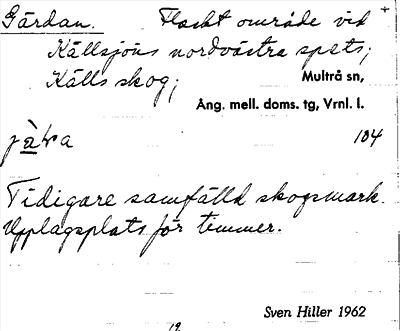 Gärdan. Flackt område vid
Källsjöns nordvästra spets;
Källs skog; Multrå sn,
Ång. mell. doms. tg, Vrnl. l.
104
Tidigare samfälld skogsmark.
Upplagsplats för timmer.
Sven Hiller 1962
12